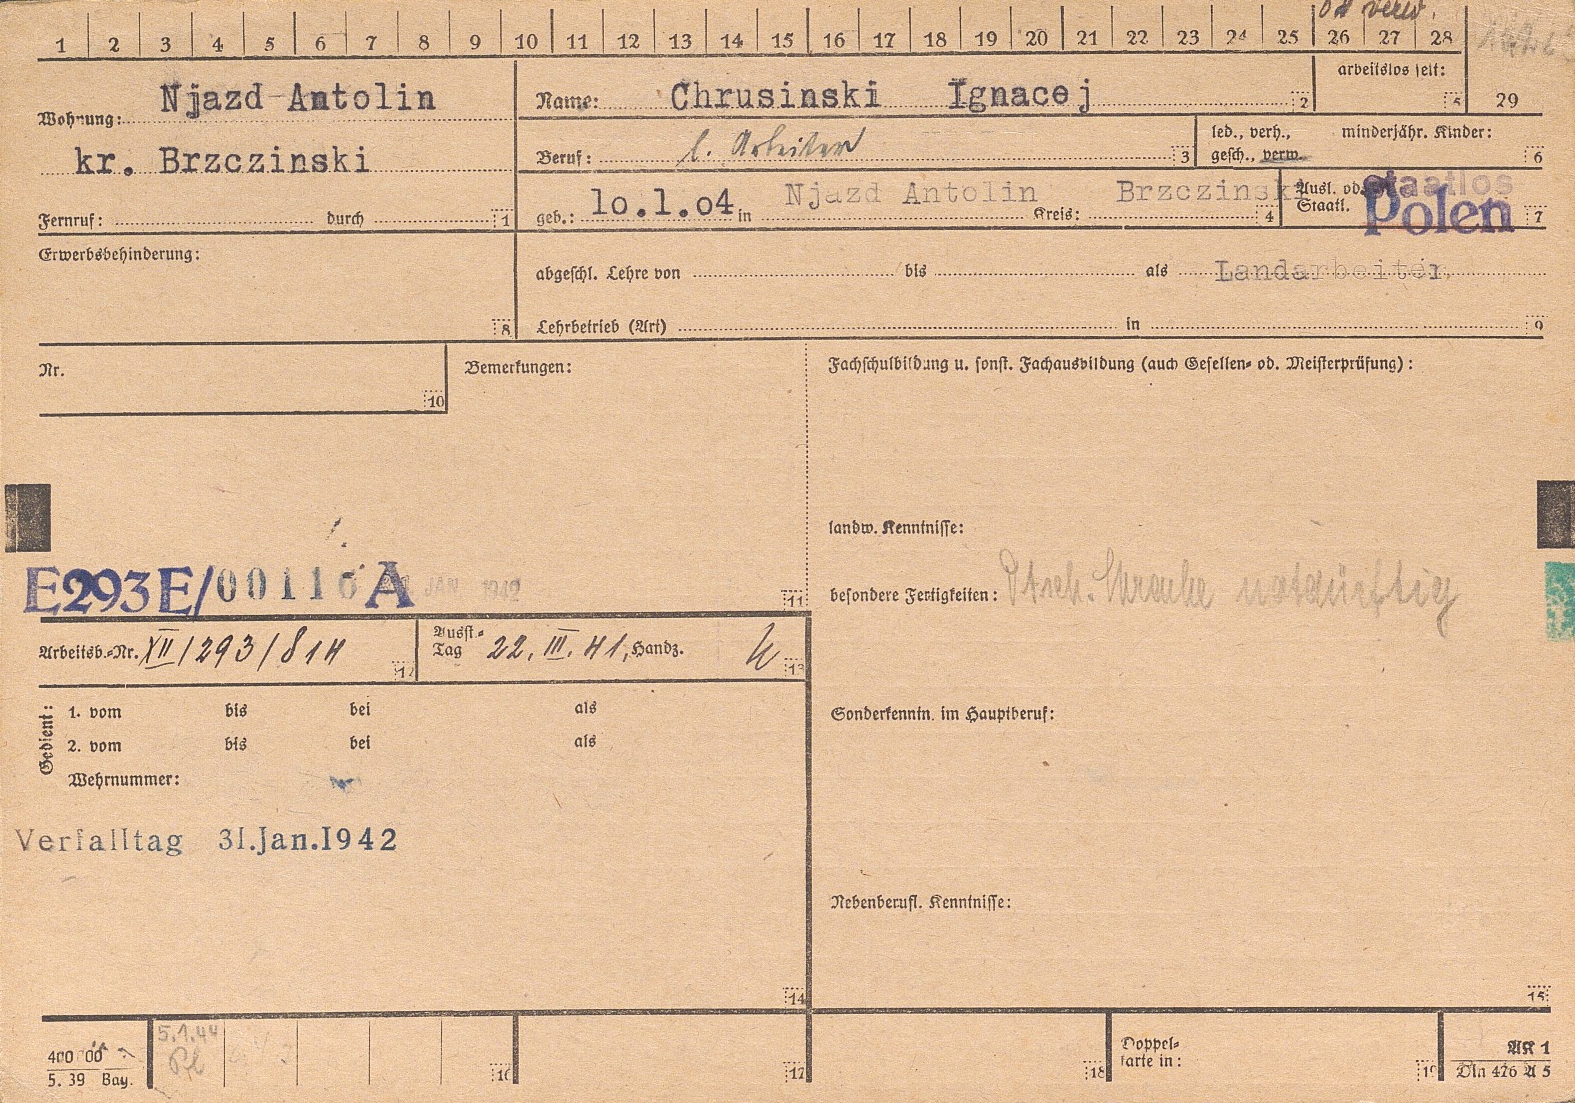 od verw.
1 2 3 4 5 6 7 8 9 10 11 12 13 14 15 16 17 18 19 20 21 22 23 24 25 26 27 28
29
Wohnung: Njazd Antolin
kr. Brzczinski
Fernruf: durch 1
Name: Chrusinski Ignacej 2
arbeitslos seit: 5
Beruf: l. Arbeiter 3
led., verh., gesch., verw.
minderjähr. Kinder: 6
geb.: 10.1.04 in Njazd Antolin Kreis: Brzczinski 4
Ausl. od. Staatl. staatlos
Polen 7
Erwerbsbehinderung:
8
abgeschl. Lehre von bis als Landarbeiter
Lehrbetrieb (Art) in 9
Nr.
10
Bemerkungen:
Fachschulbildung u. sonst. Fachausbildung (auch Gesellen- od. Meisterprüfung):
landw. Kenntnisse:
besondere Fertigkeiten: Dtsch. Sprache notdürftig
E293E/00116 A JAN. 1942
11
Arbeitsb.-Nr. XII/293/814 12
Ausst.-Tag 22. III. 41, Handz. 13
Sonderkenntn. im Hauptberuf:
Gedient:
1. vom bis bei als
2. vom bis bei als
Wehrnummer:
Verfalltag 31.Jan.1942
Nebenberufl. Kenntnisse:
14
15
5. 39 Bay.
5.1.44
16
17
18
Doppelkarte in:
19
AK 1
Din 476 A 5